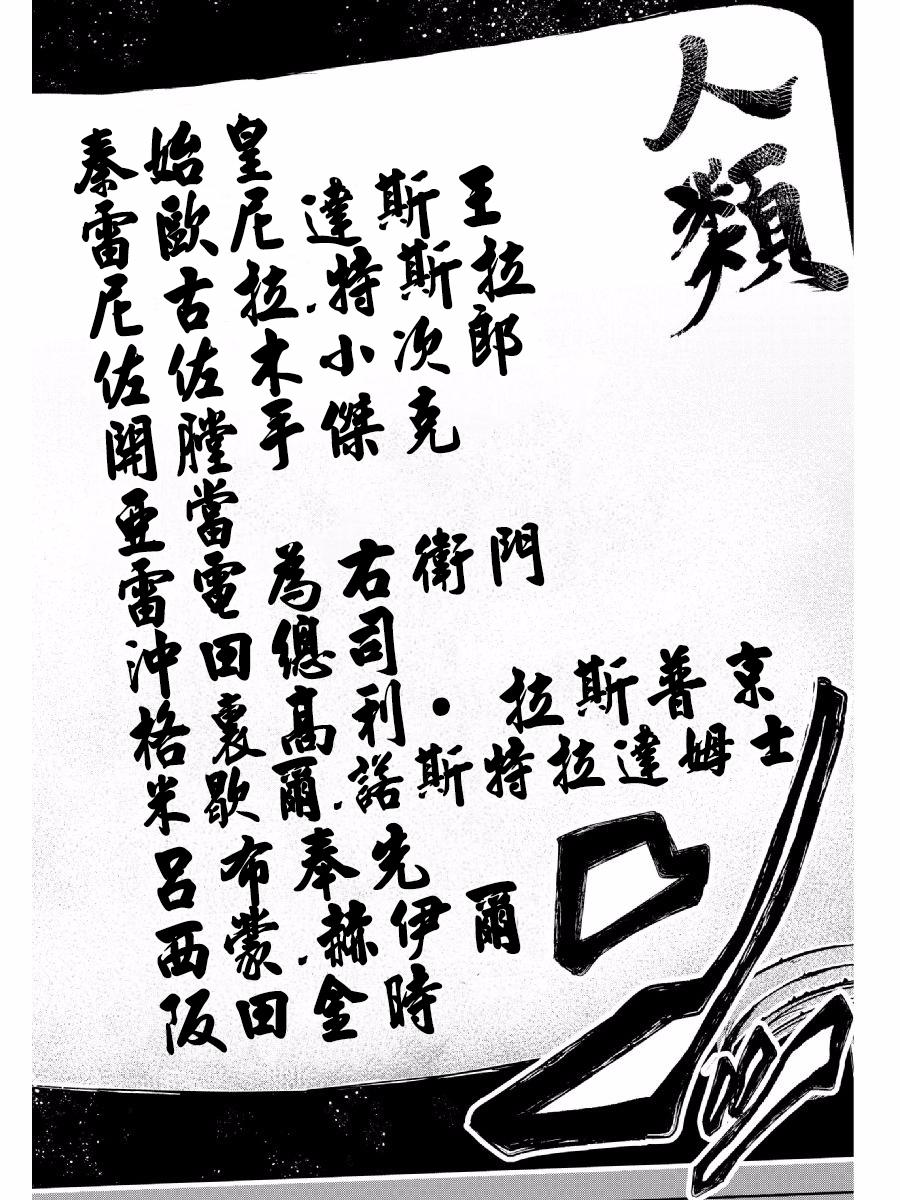 人類
秦始皇
雷歐尼達斯王
尼古拉.特斯拉
佐佐木小次郎
開膛手傑克
亞當
雷電為右衛門
沖田總司
格裏高利·拉斯普京
米歇爾.諾斯特拉達姆士
呂布奉先
西蒙.赫伊爾
阪田金時